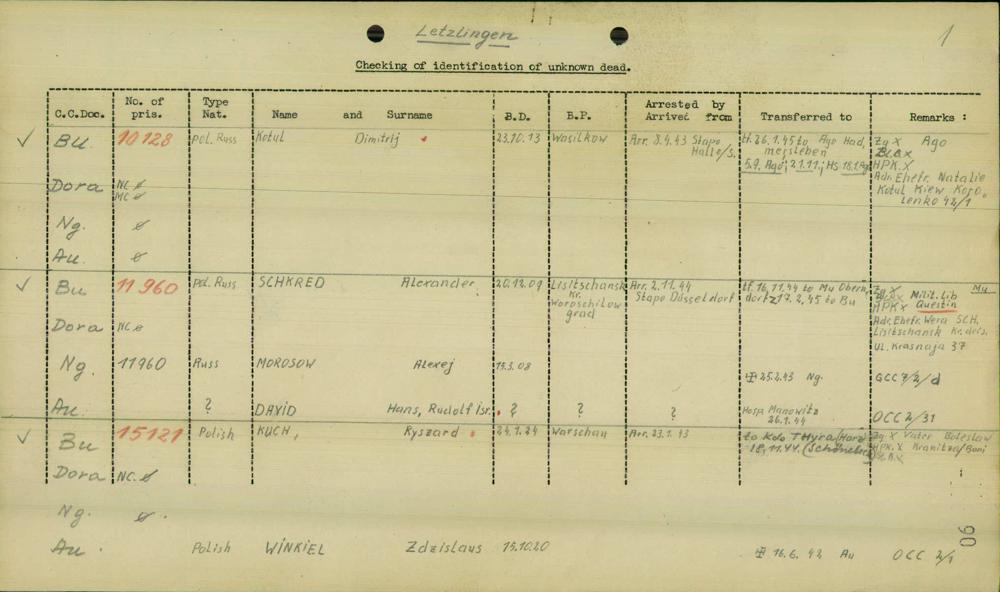 Letzlingen
1
Checking of identification of unknown dead.
C.C.Doc. No. of pris. Type Nat. Name and Surname B.D. B.P. Arrested by Arrived from Transferred to Remarks :
✓ Bu. 10128 pol. Russ Kotul Dimitrij 23.10.13 Wasilkow Arr. 8.4.43 Stapo Halle/S. tf. 26.1.45 to Ago Had, mersleben Zg X Ago
5.9. Ago; 2.1.11; HS HPK. X
Adr. Ehefr. Natalie
Dora NC ø
MC ø
Kotul Kiew Koro,
lenko 42/1
Ng. ø
Au. ø
✓ Bu 11960 pol. Russ SCHKRED Alexander 20.12.09 Lisitschansk Kr. Woroschilow grad Arr. 2.11.44 Stapo Düsseldorf tf. 16.11.44 to Mu Obern, dorf, 17.2.45 to Bu Zg X Milit. Lib Mu
HPK X Questin
Adr. Ehefr. Wera SCH.
Dora NC. ø
Lisitschansk Kr. ders.
Ul. Krasnaja 37
Ng. 11960 Russ MOROSOW Alexej 15.3.08 25.2.43 Ng. GCC 7/2/d
Au. ? DAVID Hans, Rudolf Isr. ? ? ? Hosp. Manowitz 26.1.44 OCC 2/31
✓ Bu 15121 Polish KUCH, Ryszard 24.1.24 Warschau Arr. 23.1.43 to Kdo THyra (Harz) 18.11.44. Zg. X Vater Boleslaw
HPK. X Kranitza/Boni
Dora NC. ø
Ng. ø
Au. Polish WINKIEL Zdzislaus 15.10.20 16.6. 42 Au OCC 2/1
90